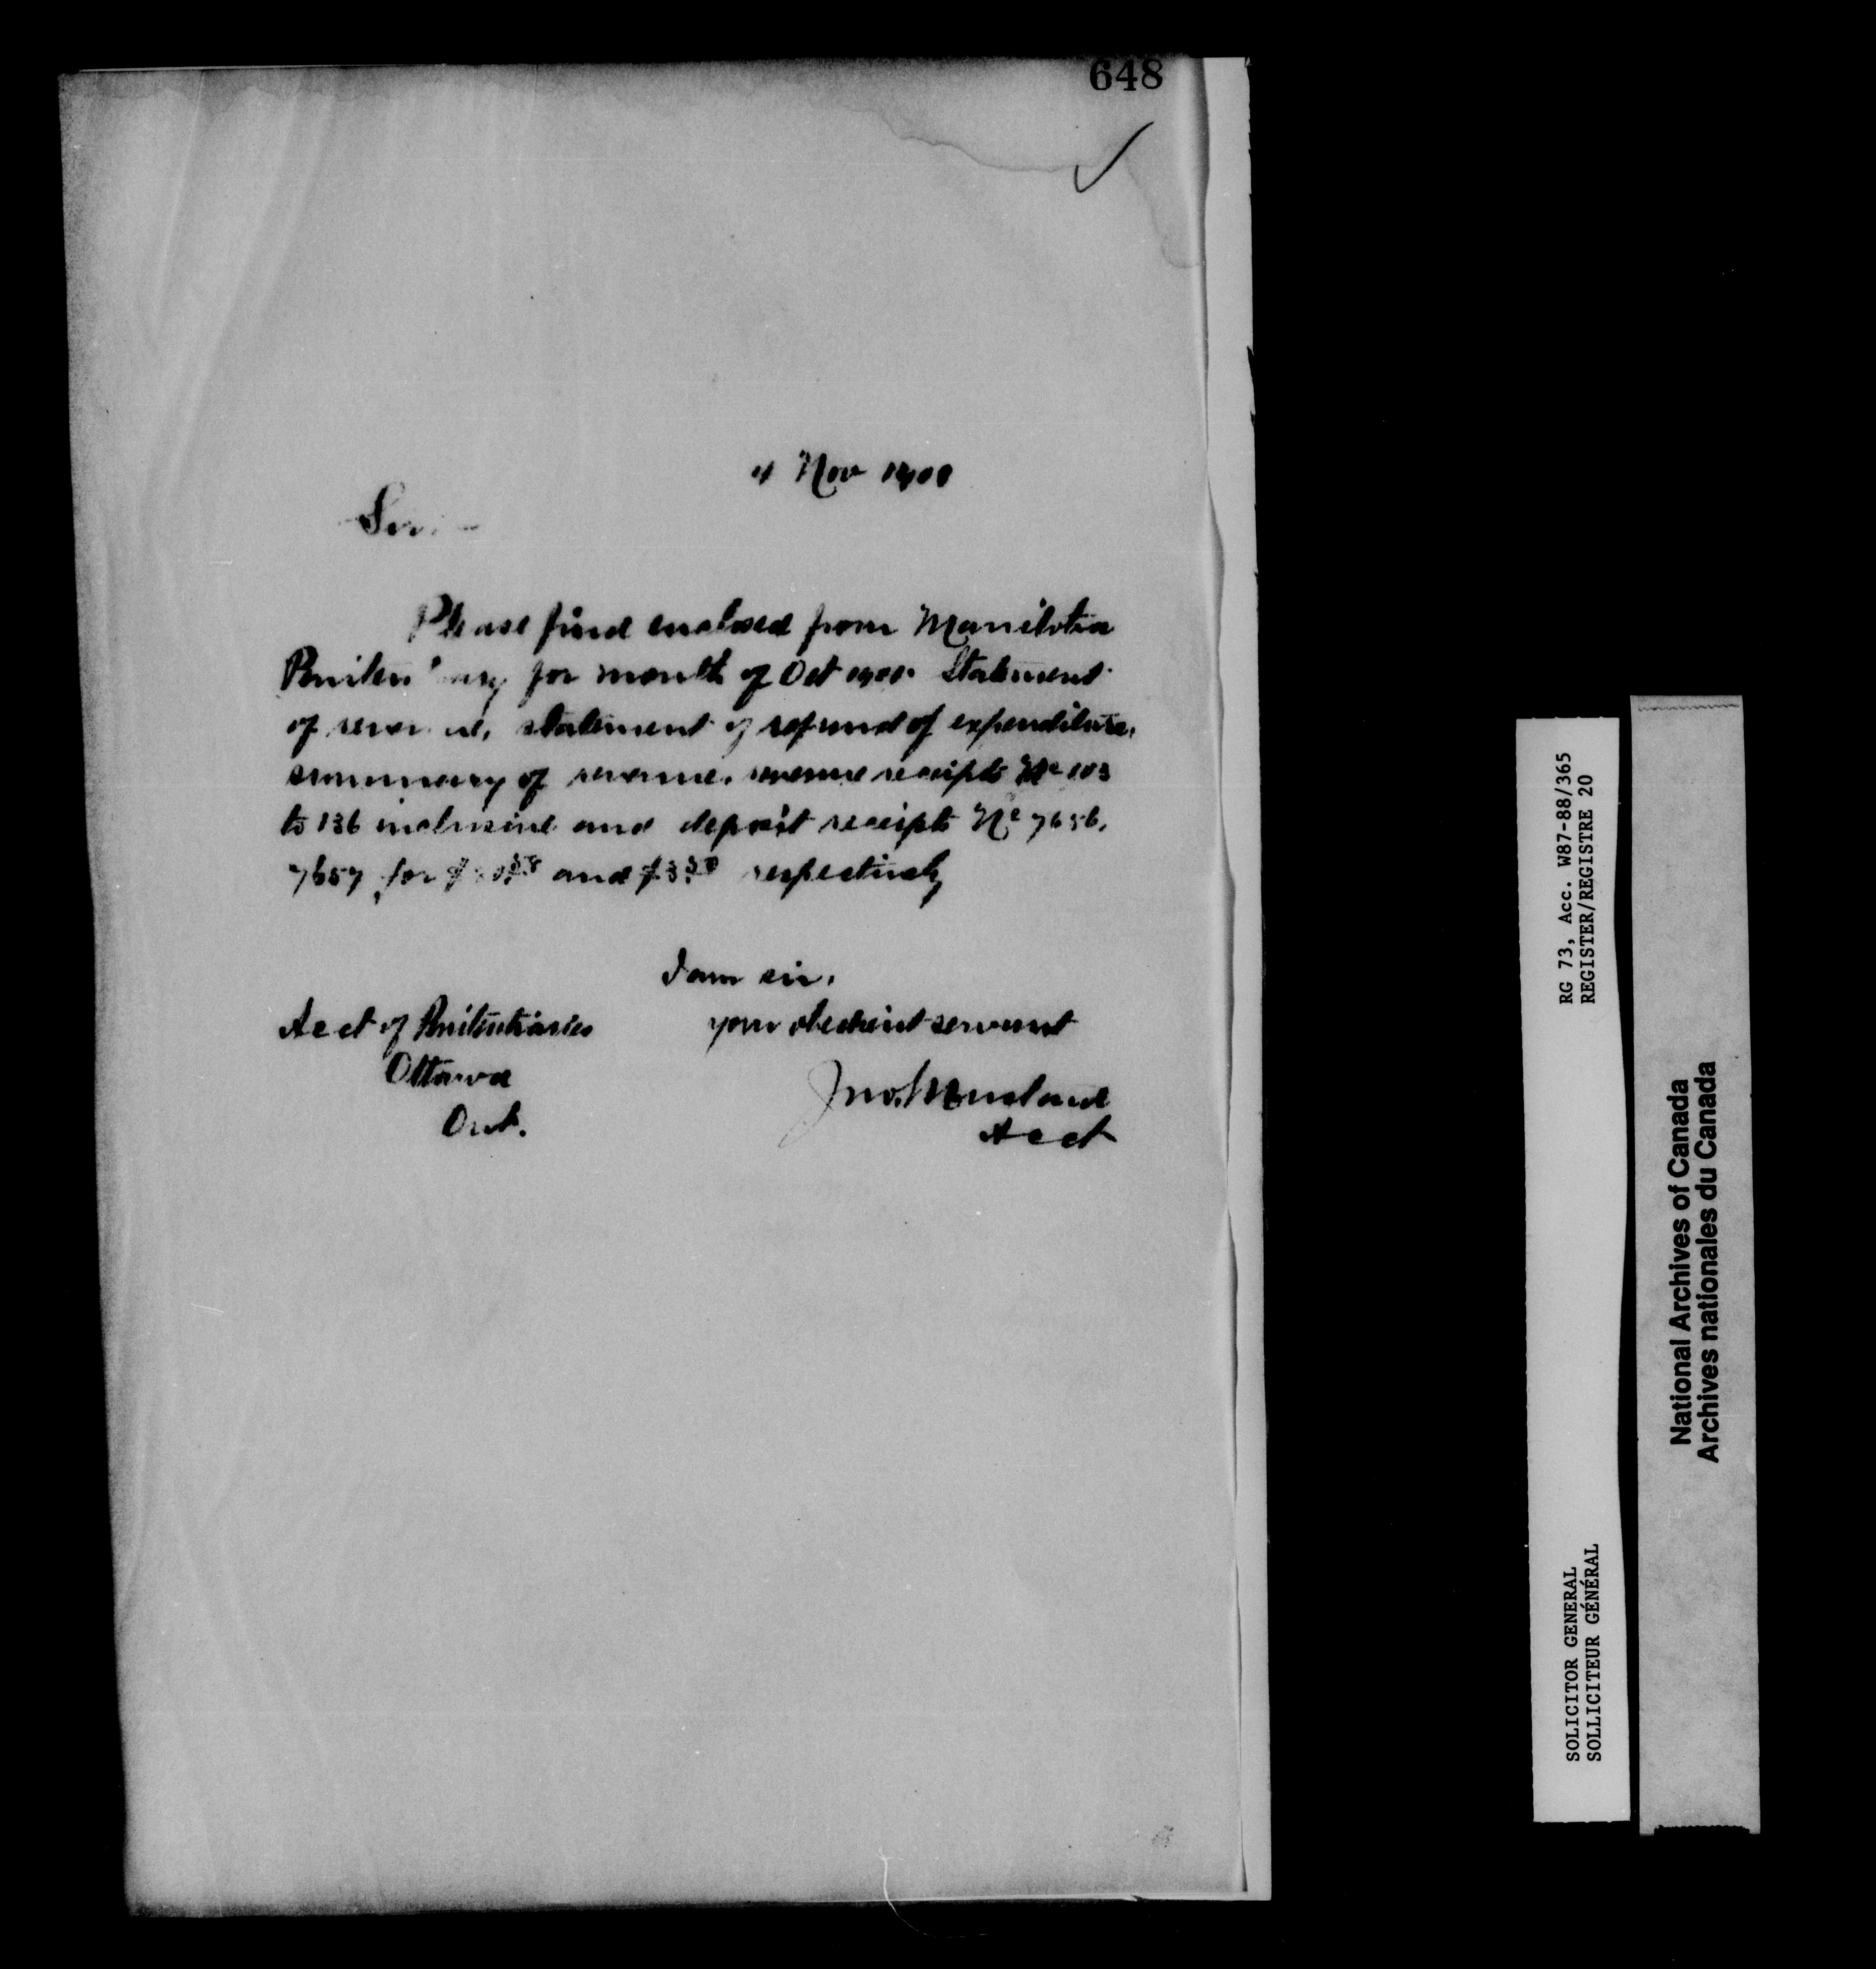 648
4 Nov
Sir
Please find enclosed from Manitoba
Penitentiary for month of Oct Statement
of revenue, statement of refund of expenditure,
summary of revenue, revenue receipts No 103
to 136 inclusive and deposit receipts No 7656,
7657 for and respectively
I am sir,
your obedient servant
Acct of Penitentiaries
Ottawa
Ont.
Jno.
Acct
RG 73, Acc. W87-88/365
REGISTER/REGISTRE 20
SOLICITOR GENERAL
SOLLICITEUR GÉNÉRAL
National Archives of Canada
Archives nationales du Canada